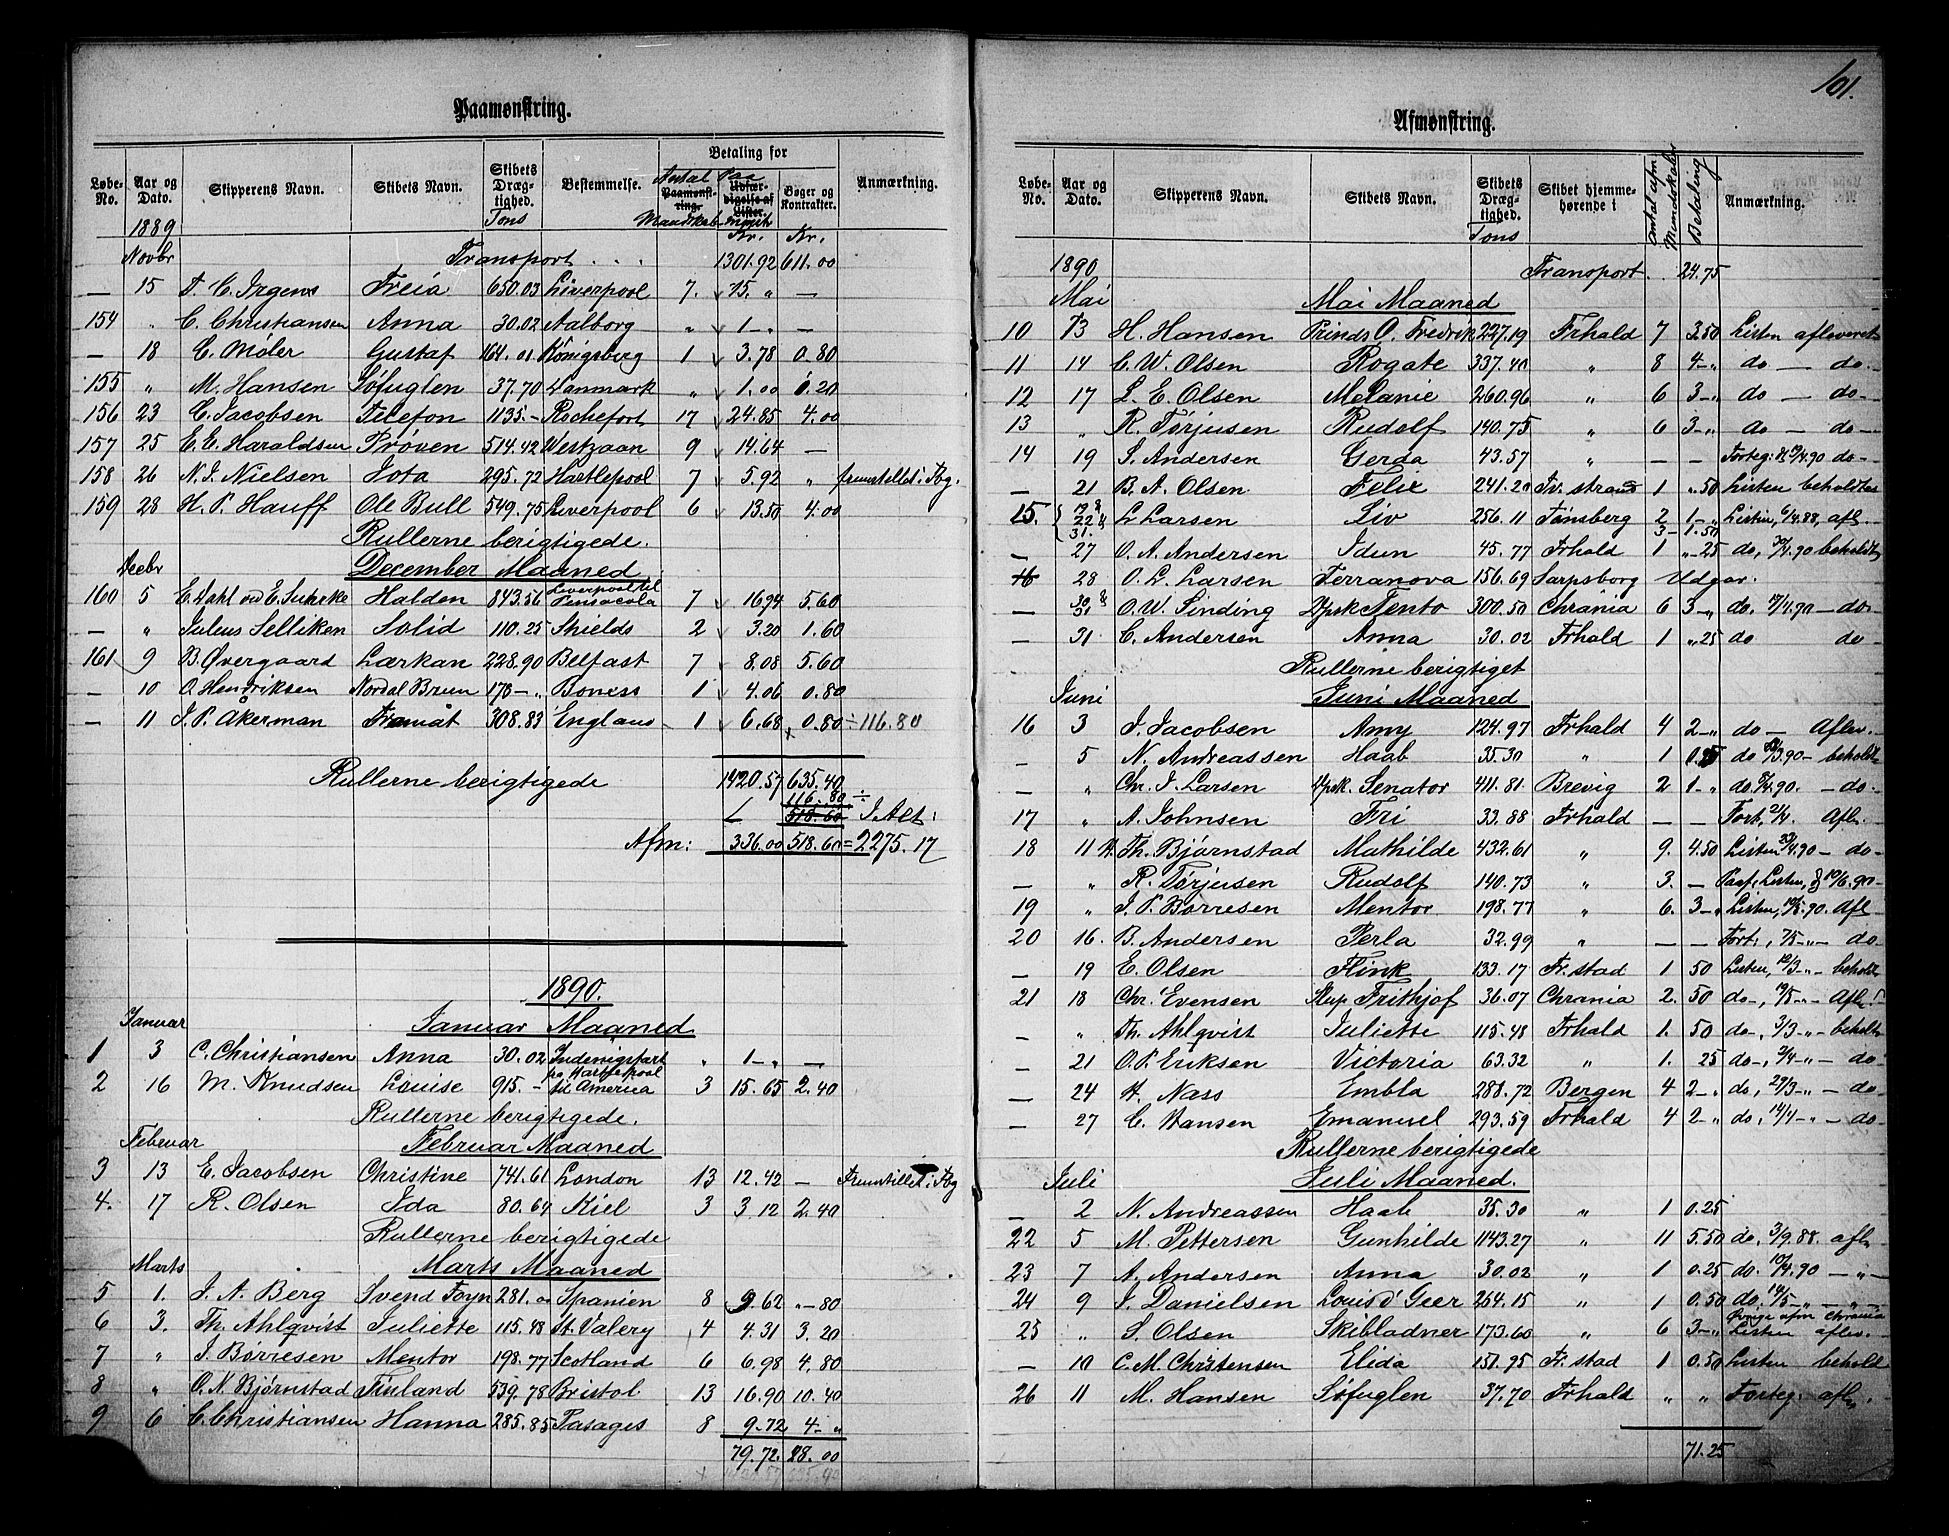 101.
Paamønstring.
Løbe-No. Aar og Dato. Skipperens Navn. Skibets Navn. Skibets Dræg-tighed. Tons Bestemmelse. Betaling for Antal Paa Paamønst-ring. Mandskab Udfær-digelse af Lister. Bøger og Kontrakter. Anmærkning.
1889 Kr. Kr.
Novbr Transport . . . 1301.92 611.00
— 15 T. C. Irgens Freia 650.03 Liverpool 7. 15. „ —
154 „ C. Christiansen Anna 30.02 Aalborg „ 1 - „ —
— 18 C. Møler Gustaf 164.01 Königsberg 1 3.78 0.80
155 „ M. Hansen Søfuglen 37.70 Danmark „ 1.00 0.20
156 23 C. Jacobsen Telefon 1135.- Rochefort 17 24.85 4.00
157 25 E. E. Haraldsen Prøven 514.42 Westzaan 9 14.64 —
158 26 N. J. Nielsen Jota 295.72 Hartlepool 7 5.92 „ fremstillet i Fbg.
159 28 H. P. Hauff Ole Bull 549.75 Liverpool 6 13.50 4.00
Rullerne berigtigede.
Decbr December Maaned
160 5 E. Dahl ved E. Suhrke Halden 843.56 Liverpool til Pensacola 7 16.94 5.60
— „ Julius Selliken Solid 110.25 Shields 2 3.20 1.60
161 9 B. Øvergaard Lærkan 228.90 Belfast 7 8.08 5.60
— 10 O. Henriksen Nordal Brun 178 - „ Boness 1 4.06 0.80
— 11 J. P. Åkerman Framåt 308.83 England 1 6.68 0.80 ÷ 116.80
Rullerne berigtigede 1420.57 635.40
116.80 ÷
518.60 I Alt:
Afm: 336.00 518.60 = 2275.17
1890.
Januar Januar Maaned
1 3 C. Christiansen Anna 30.02 Indenigsfart „ 1 - „ —
2 16 M. Knudsen Louise 915. - fra Hartlepool til America 3 15.65 2.40
Rullerne berigtigede.
Februar Februar Maaned
3 13 E. Jacobsen Christine 741.61 London 13 12.42 — Fremstillet i Fbg
4. 17 R. Olsen Ida 80.64 Kiel 3 3.12 2.40
Rullerne berigtigede
Marts Marts Maaned
5 1. J. A. Berg Svend Foyn 281.00 Spanien 8 9.62 „-80
6 3. Th. Ahlqvist Juliette 115.48 St. Valery 4 4.31 3.20
7 „ J. Børresen Mentor 198.77 Scotland 6 6.98 4.80
8 „ O. N. Bjørnstad Finland 539.78 Bristol 13 16.90 10.40
9 6 C. Christiansen Hanna 285.85 Pasages 8 9.72 4- „
79.72. 28.00
Afmønstring.
Løbe-No. Aar og Dato. Skipperens Navn. Skibets Navn. Skibets Dræg-tighed. Tons Skibet hjemme-hørende i Antal afm Mandskaber Betaling Anmærkning.
1890 Transport . . 24.75
Mai Mai Maaned
10 13 H. Hansen Prinds O. Fredrik 227.19 Frhald 7 3.50 Listen afleveret
11 14 C. W. Olsen Rogate 337.40 „ 8 4-„ do — do.
12 17 L. E. Olsen Melanie 260.96 „ 6 3-„ do — do-
13 „ R. Tørjusen Rudolf 140.75 „ 6 3-„ do — do-
14 19 S. Andersen Gerda 43.57 „ — — Forteg: do-
— 21 B. A. Olsen Felix 241.20 Tv. strand 1 „ 50 Listen beholdtes
15. 22 & 31. L. Larsen Siv 256.11 Tønsberg 2 1-„ Listen, 6/4.88, afl.
3 - 1.50
— 27 O. A. Andersen Idun 45.77 Frhald 1 „-25 do, beholdt
16 28 O. L. Larsen Terranova 156.69 Sarpsborg Udgår.
— 30 & 31 O. W. Sinding Dpsk Tento 300.50 Chrania 6 3-„ do, 17/4.90 — do-
— 31 C. Andersen Anna 30.02 Frhald 1 „ 25 do do-
Rullerne berigtiget
Juni Juni Maaned
16 3 J. Jacobsen Amy 124.97 Frhald 4 2-„ do — Aflev.
— 5 N. Andreassen Haab 35.30 „ 1 0.25 do beholdt
— „ Chr. J. Larsen Dpsk. Senator 411.81 Brevig 2 1-„ do. — do-
17 „ A. Johnsen Fri 33.88 Frhald — — Fort, 2/4. Afl.
18 11 H. Th. Bjørnstad Mathilde 432.61 „ 9. 4.50 Listen — do-
— „ R. Tørjusen Rudolf 140.73 „ 3. — Paaf. Listen, 10/6.90-
19 „ J. P. Børresen Mentor 198.77 „ 6. 3-„ Listen, Afl
20 16. B. Andersen Perla 32.99 „ — — Fort:, 7/5-„ - do-
— 19 E. Olsen Flink 133.17 Fr. stad 1 50 Listen, 12/3-„- beholdt
21 18 Chr. Evensen Slup Frithjof 36.07 Chrania 2. 50 do-, 19/5-„- Afl.
— „ Th. Ahlqvist Juliette 115.48 Frhald 1. 50 do-, 3/3-„- beholdt
— 21 O. P. Eriksen Victoria 63.32 „ 1. 25 do-, 2/4-„- do-
— 24 H. Nass Embla 281.72 Bergen 4 2-„ do, 29/3-„- do-
— 27 C. Hansen Emanuel 293.59 Frhald 4 2-„ do, 14/4-„- do-
Rullerne berigtigede
Juli Juli Maaned.
— 2 N. Andreassen Haab 35.30 „ 1 0.25
22 5 M. Pettersen Gunhilde 1143.27 „ 11 5.50 do, 3/9.88. afl.
23 7 A. Andersen Anna 30.02 „ 1 0.25 do. 10/4.90 —„-
24 9 J. Danielsen Louis d' Geer 264.15 „ 1 0.50 do, 14/5-„ — „
25 „ S. Olsen Skibladner 173.60 „ 6 3-„ Listen aflev.
— 10 C. M. Christensen Elida 151.95 Fr. stad 1 0.50 Listen behold
26 11 M. Hansen Søfuglen 37.70 Frhald „ „ Forteg. afl.
71.25